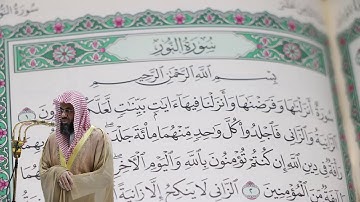 سورة النور
سُورَةُ النُّورِ
بِسْمِ اللَّهِ الرَّحْمَٰنِ الرَّحِيمِ
سُورَةٌ أَنزَلْنَاهَا وَفَرَضْنَاهَا وَأَنزَلْنَا فِيهَا ءَايَٰتٍ بَيِّنَٰتٍ لَّعَلَّكُمْ
وَالزَّانِي فَاجْلِدُوا كُلَّ وَاحِدٍ مِّنْهُمَا مِائَةَ
فِي دِينِ اللَّهِ إِن كُنتُمْ تُؤْمِنُونَ بِاللَّهِ وَالْيَوْمِ الْآخِرِ
مِّنَ الْمُؤْمِنِينَ ٢ الزَّانِي لَا يَنكِحُ إِلَّا زَانِيَةً